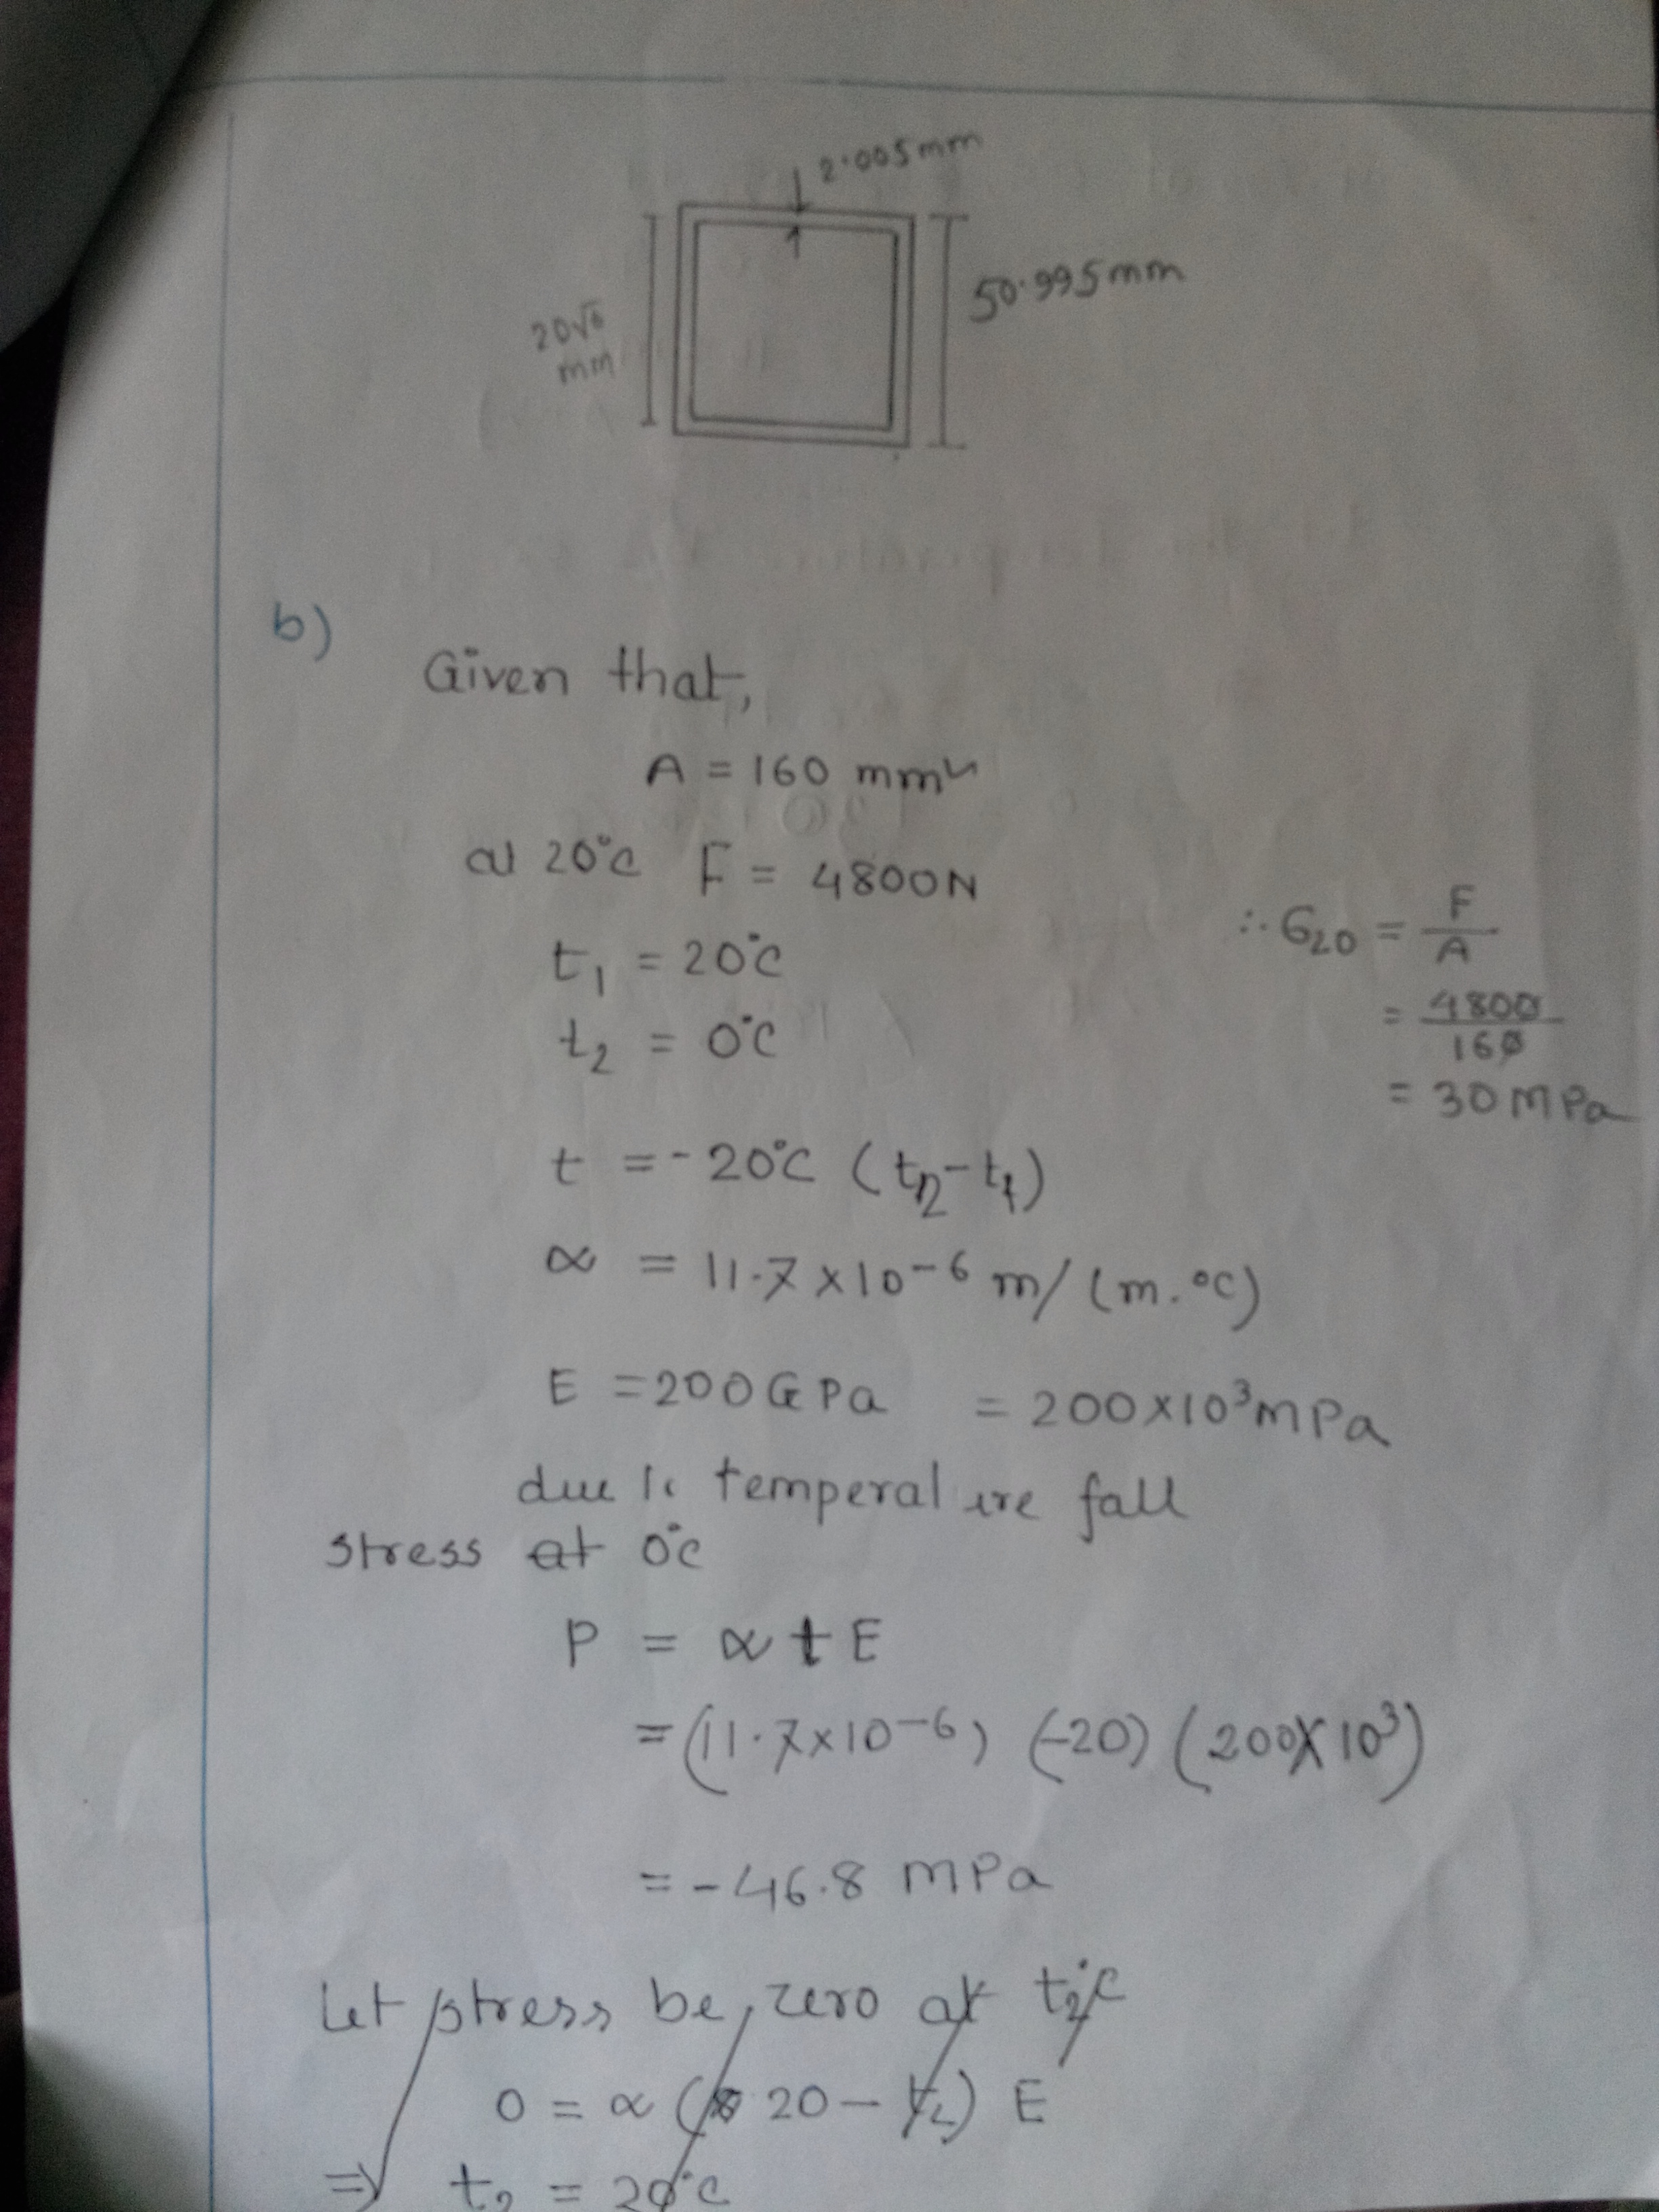 2.005mm
20√6
mm
50.995mm
b)
Given that,
A = 160 mm²
at 20°C F = 4800N
t₁ = 20°C
t₂ = 0°C
∴ σ₂₀ = F/A
= 4800/160
= 30 MPa
t = -20°C (t₂-t₁)
α = 11.7 × 10⁻⁶ m/(m.°C)
E = 200GPa = 200×10³ MPa
due to temperature fall
stress at 0°C
P = α t E
= (11.7×10⁻⁶) (-20) (200×10³)
= -46.8 MPa
Let stress be zero at t₂°C
0 = α (20 - t₂) E
⇒ t₂ = 20°C